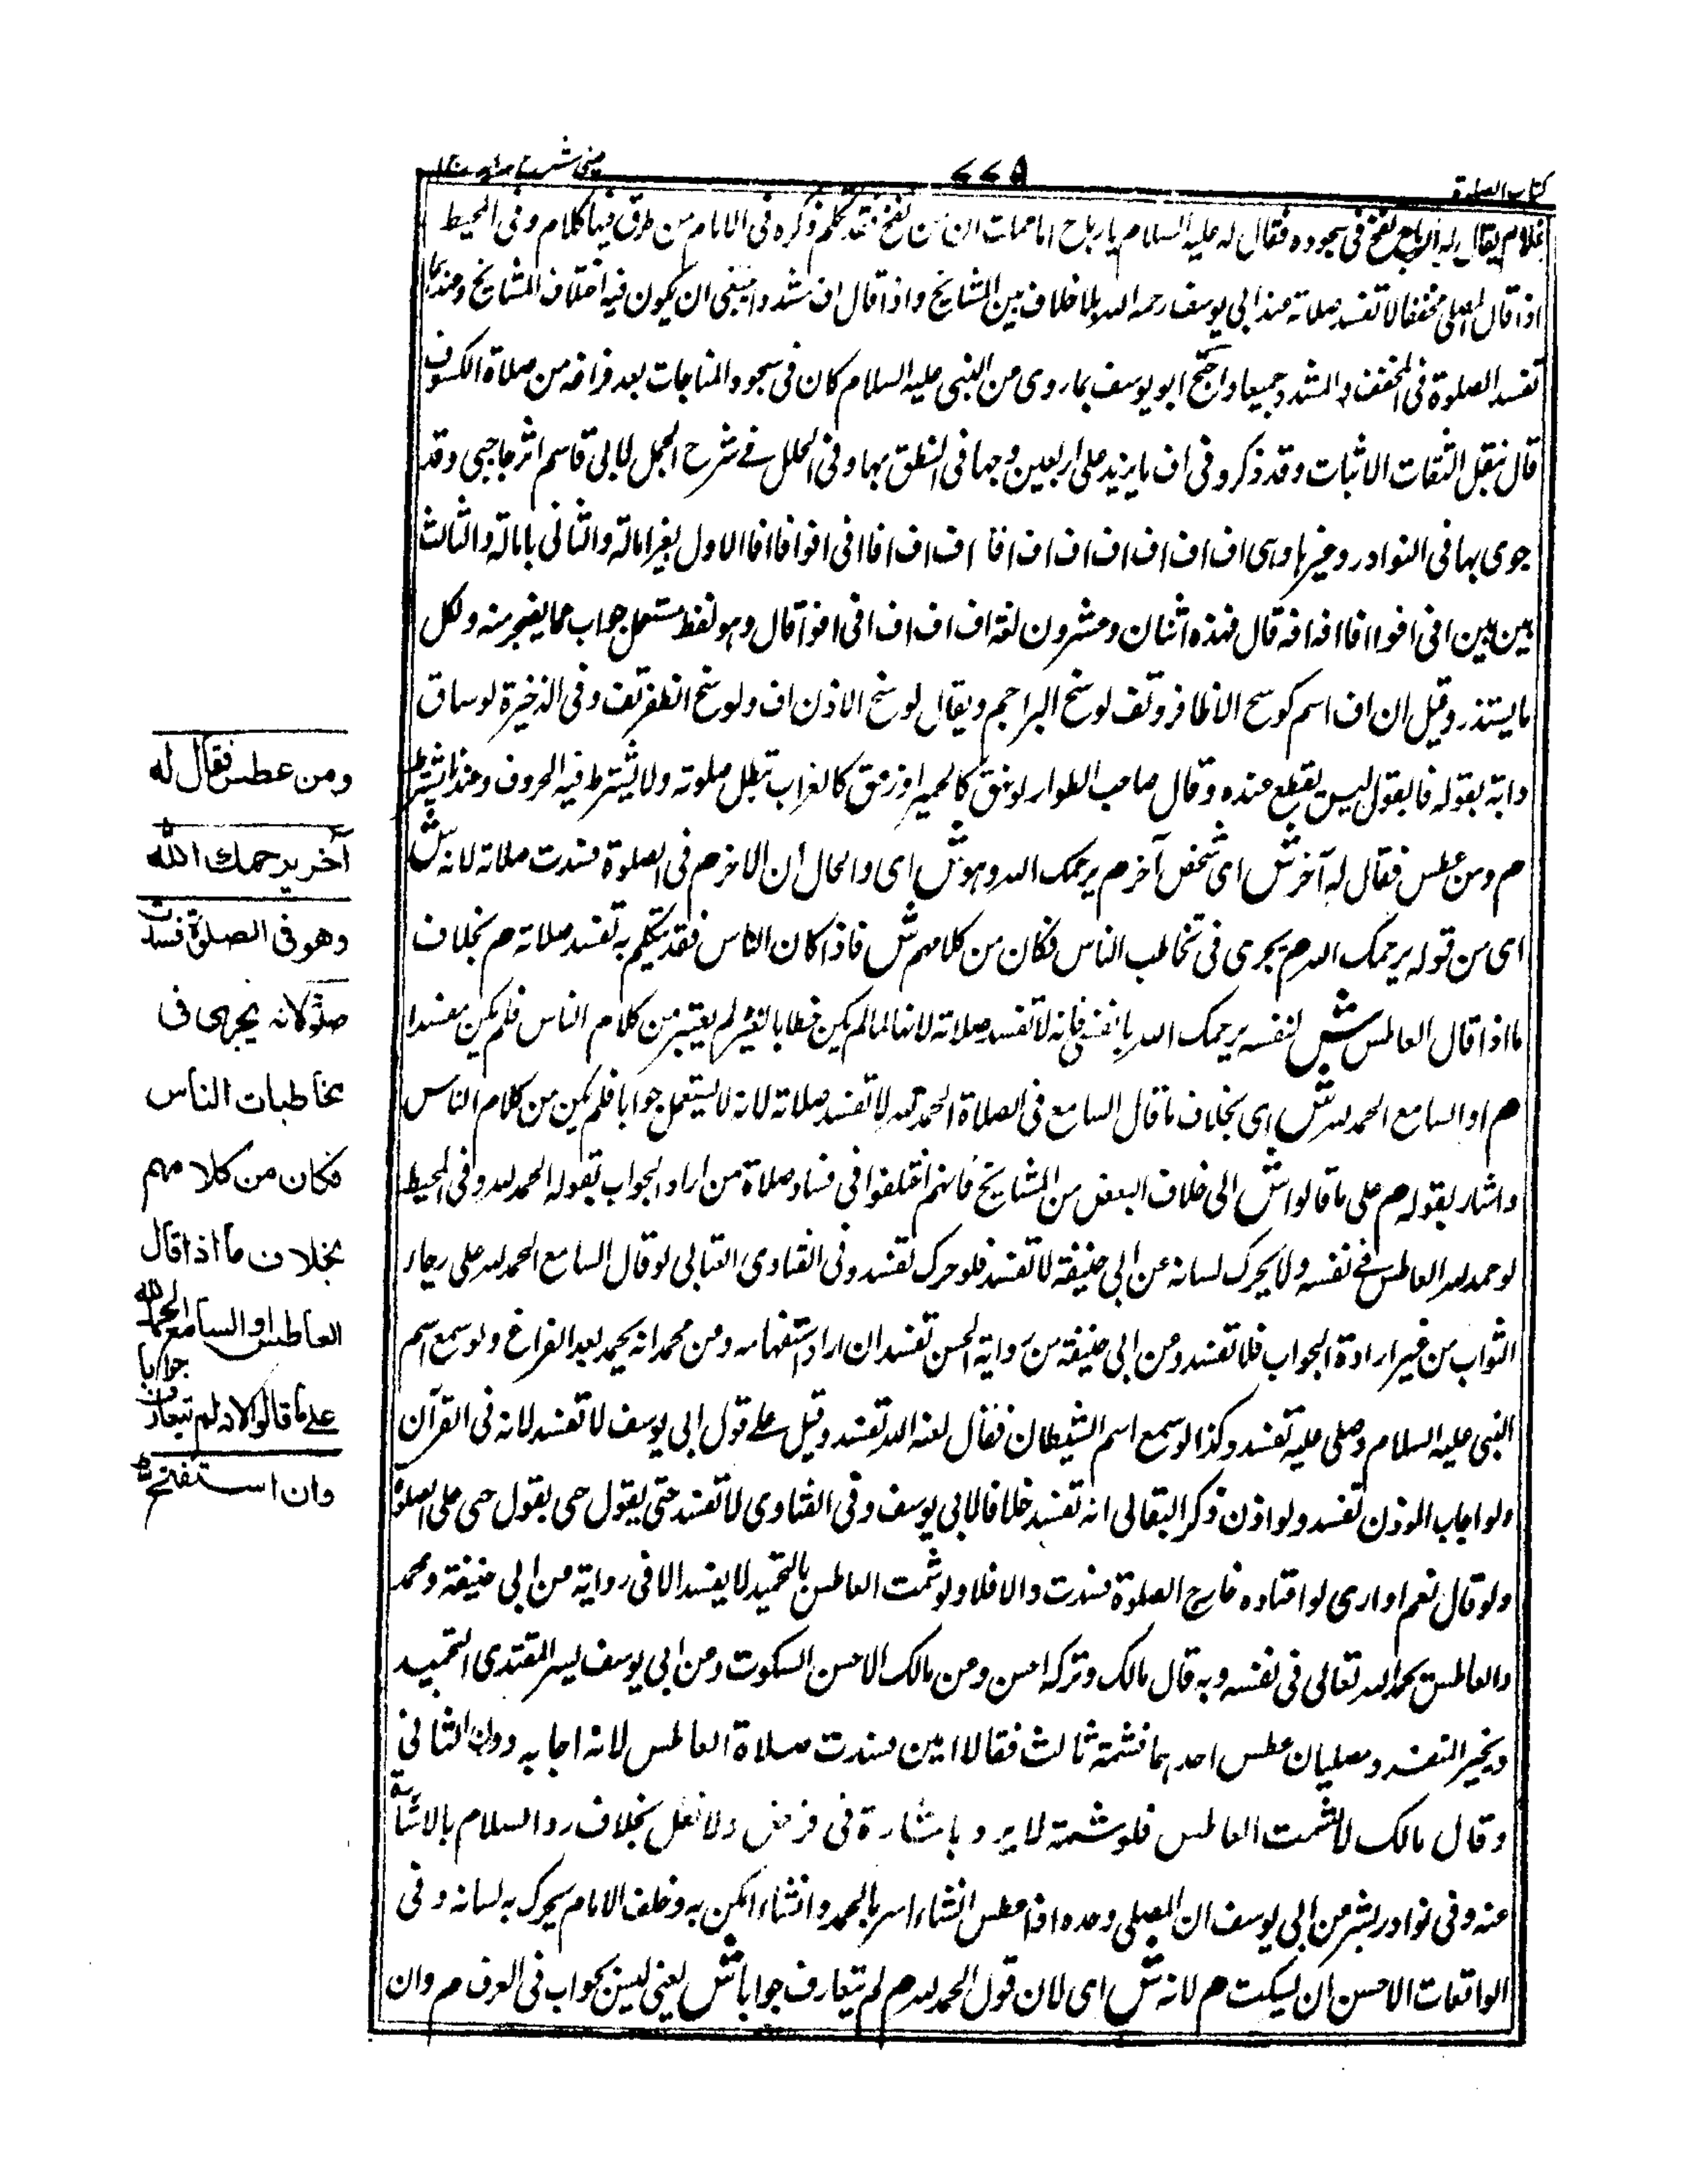 كتاب الصلوة
٧٧٥
عينى شرح هدايه ج ١
غلام يقال له رباح نفخ فى سجوده فقال له عليه السلام يا رباح اما علمت ان من نفخ فقد تكلم ذكره فى الامام من طرق فيها كلام وفى المحيط
اذا قال المصلى مخففا لا تفسد صلاته عند ابى يوسف رحمه الله بلا خلاف بين المشايخ واذا قال اف مشددا ينبغى ان يكون فيه اختلاف المشايخ وعندهما
تفسد الصلوة فى المخفف والمشدد جميعا واحتج ابو يوسف بما روى عن النبى عليه السلام كان فى سجود المناجات بعد فراغه من صلاة الكسوف
قال بنقل الثقات الاثبات وقد ذكروا فى اف ما يزيد على اربعين وجها فى النطق بها وفى الحلل فے شرح الجمل لابى قاسم وقد
جوى بها فى النوادر وغيرها وهى اف اف اف اف اف اف اف افا اف اف افا افى افوا فا افا الاول بغير امالة والثانى بامالة والثالث
بين بين افى افوا افا افه افه قال فهذه اثنان وعشرون لغة اف اف اف افى افوا قال وهو لفظ مستعمل جواب عما يضجر منه ولكل
ما يستقذر وقيل ان اف اسم لوسخ الاظافر وتف لوسخ البراجم ويقال لوسخ الاذن اف ولوسخ الظفر تف وفى الذخيرة لو ساق
دابة بقوله فالقول ليس بقطع عنده وقال صاحب الطوار لو نهق كالحمير او زعق كالغراب تبطل صلوته ولا يشترط فيه الحروف وعندنا يشترط
م ومن عطس فقال له آخر ش اى شخص آخر م يرحمك الله وهو ش اى والحال ان الاخر م فى الصلوة فسدت صلاته لانه ش
اى من قوله يرحمك الله م يجرى فى تخاطب الناس فكان من كلامهم ش فاذا كان الناس فقد يتكلم به تفسد صلاته م بخلاف
ما اذا قال العاطس ش لنفسه يرحمك الله يا نفسى فانه لا تفسد صلاته لانها لما لم يكن خطابا لغيره لم يعتبر من كلام الناس فلم يكن مفسدا
م او السامع الحمد لله ش اى بخلاف ما قال السامع فى الصلاة الحمد لله لا تفسد صلاته لانه لا يستعمل جوابا فلم يكن من كلام الناس
واشار بقوله م على ما قالوا ش الى خلاف البعض من المشايخ فانهم اختلفوا فى فساد صلاة من اراد الجواب بقوله الحمد لله وفى المحيط
لو حمد الله العاطس فے نفسه ولا يحرك لسانه عن ابى حنيفة لا تفسد فلو حرك تفسد وفى الفتاوى العتابى لو قال السامع الحمد لله على رجاء
الثواب من غير ارادة الجواب فلا تفسد وعن ابى حنيفة من رواية الحسن تفسد ان اراد استفهامه وعن محمد انه يحمد بعد الفراغ ولو سمع اسم
النبى عليه السلام وصلى عليه تفسد وكذا لو سمع اسم الشيطان فقال لعنه الله تفسد وقيل على قول ابى يوسف لا تفسد لانه فى القرآن
ولو اجاب المؤذن تفسد ولو اذن ذكر البقالى انه تفسد خلافا لابى يوسف وفى الفتاوى لا تفسد حتى يقول حى بقول حى على الصلوة
ولو قال نعم او ارى لو اعتاده خارج الصلوة فسدت والا فلا ولو شمت العاطس بالتحميد لا يفسد الا فى رواية عن ابى حنيفة ومحمد
والعاطس يحمد الله تعالى فى نفسه وبه قال مالك وتركه احسن وعن مالك الاحسن السكوت وعن ابى يوسف يسر المقتدى التحميد
ويخير المنفرد ومصليان عطس احدهما فشمته ثالث فقالا امين فسدت صلاة العاطس لانه اجابه دون الثانى
وقال مالك لا يشمت العاطس فلو شمته لا يرد باشارة فى فرض ولا نفل بخلاف رد السلام بالاشارة
عنه وفى نوادر بشر عن ابى يوسف ان المصلى وحده اذا عطس ان شاء اسر بالحمد وان شاء اعلن به وخلف الامام يحرك به لسانه وفى
الواقعات الاحسن ان يسكت م لانه ش اى لان قول الحمد لله م لم يتعارف جوابا ش يعنى ليس بجواب فى العرف م وان
ومن عطس فقال له
آخر يرحمك الله
وهو فى الصلوة فسدت
صلوته لانه يجرى فى
مخاطبات الناس
فكان من كلامهم
بخلاف ما اذا قال
العاطس او السامع الحمد لله
على ما قالوا لانه لم يتعارف جوابا
وان استفتح